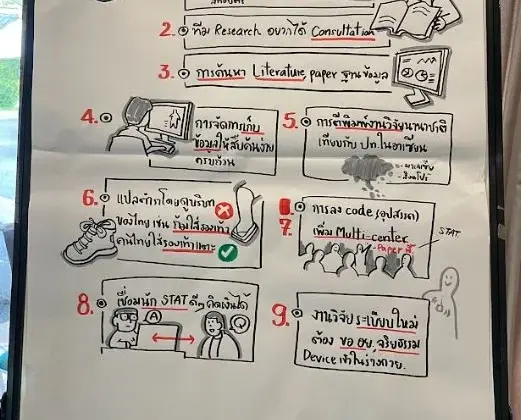 2. ทีม Research อยากได้ Consultation
3. การค้นหา Literature, paper ฐานข้อมูล
4. การจัดการเก็บ
ข้อมูลให้สืบค้นง่าย
ครบถ้วน
5. การตีพิมพ์งานวิจัยนานาชาติ
เทียบกับ ปท.ในอาเซียน
- มาเลเซีย
- สิงคโปร์
6. แปลคำถามโดยดูบริบท
ของไทย เช่น
คนไทยใส่รองเท้าแตะ
7. การลง code (อุปสรรค)
เพิ่ม Multi-center
Paper ดี
STAT
8. เชื่อมนัก STAT ดีๆ คิดเงินได้
A
Q
9. งานวิจัยระเบียบใหม่
ต้อง ขอ อย. จริยธรรม
Device เข้าในร่างกาย.